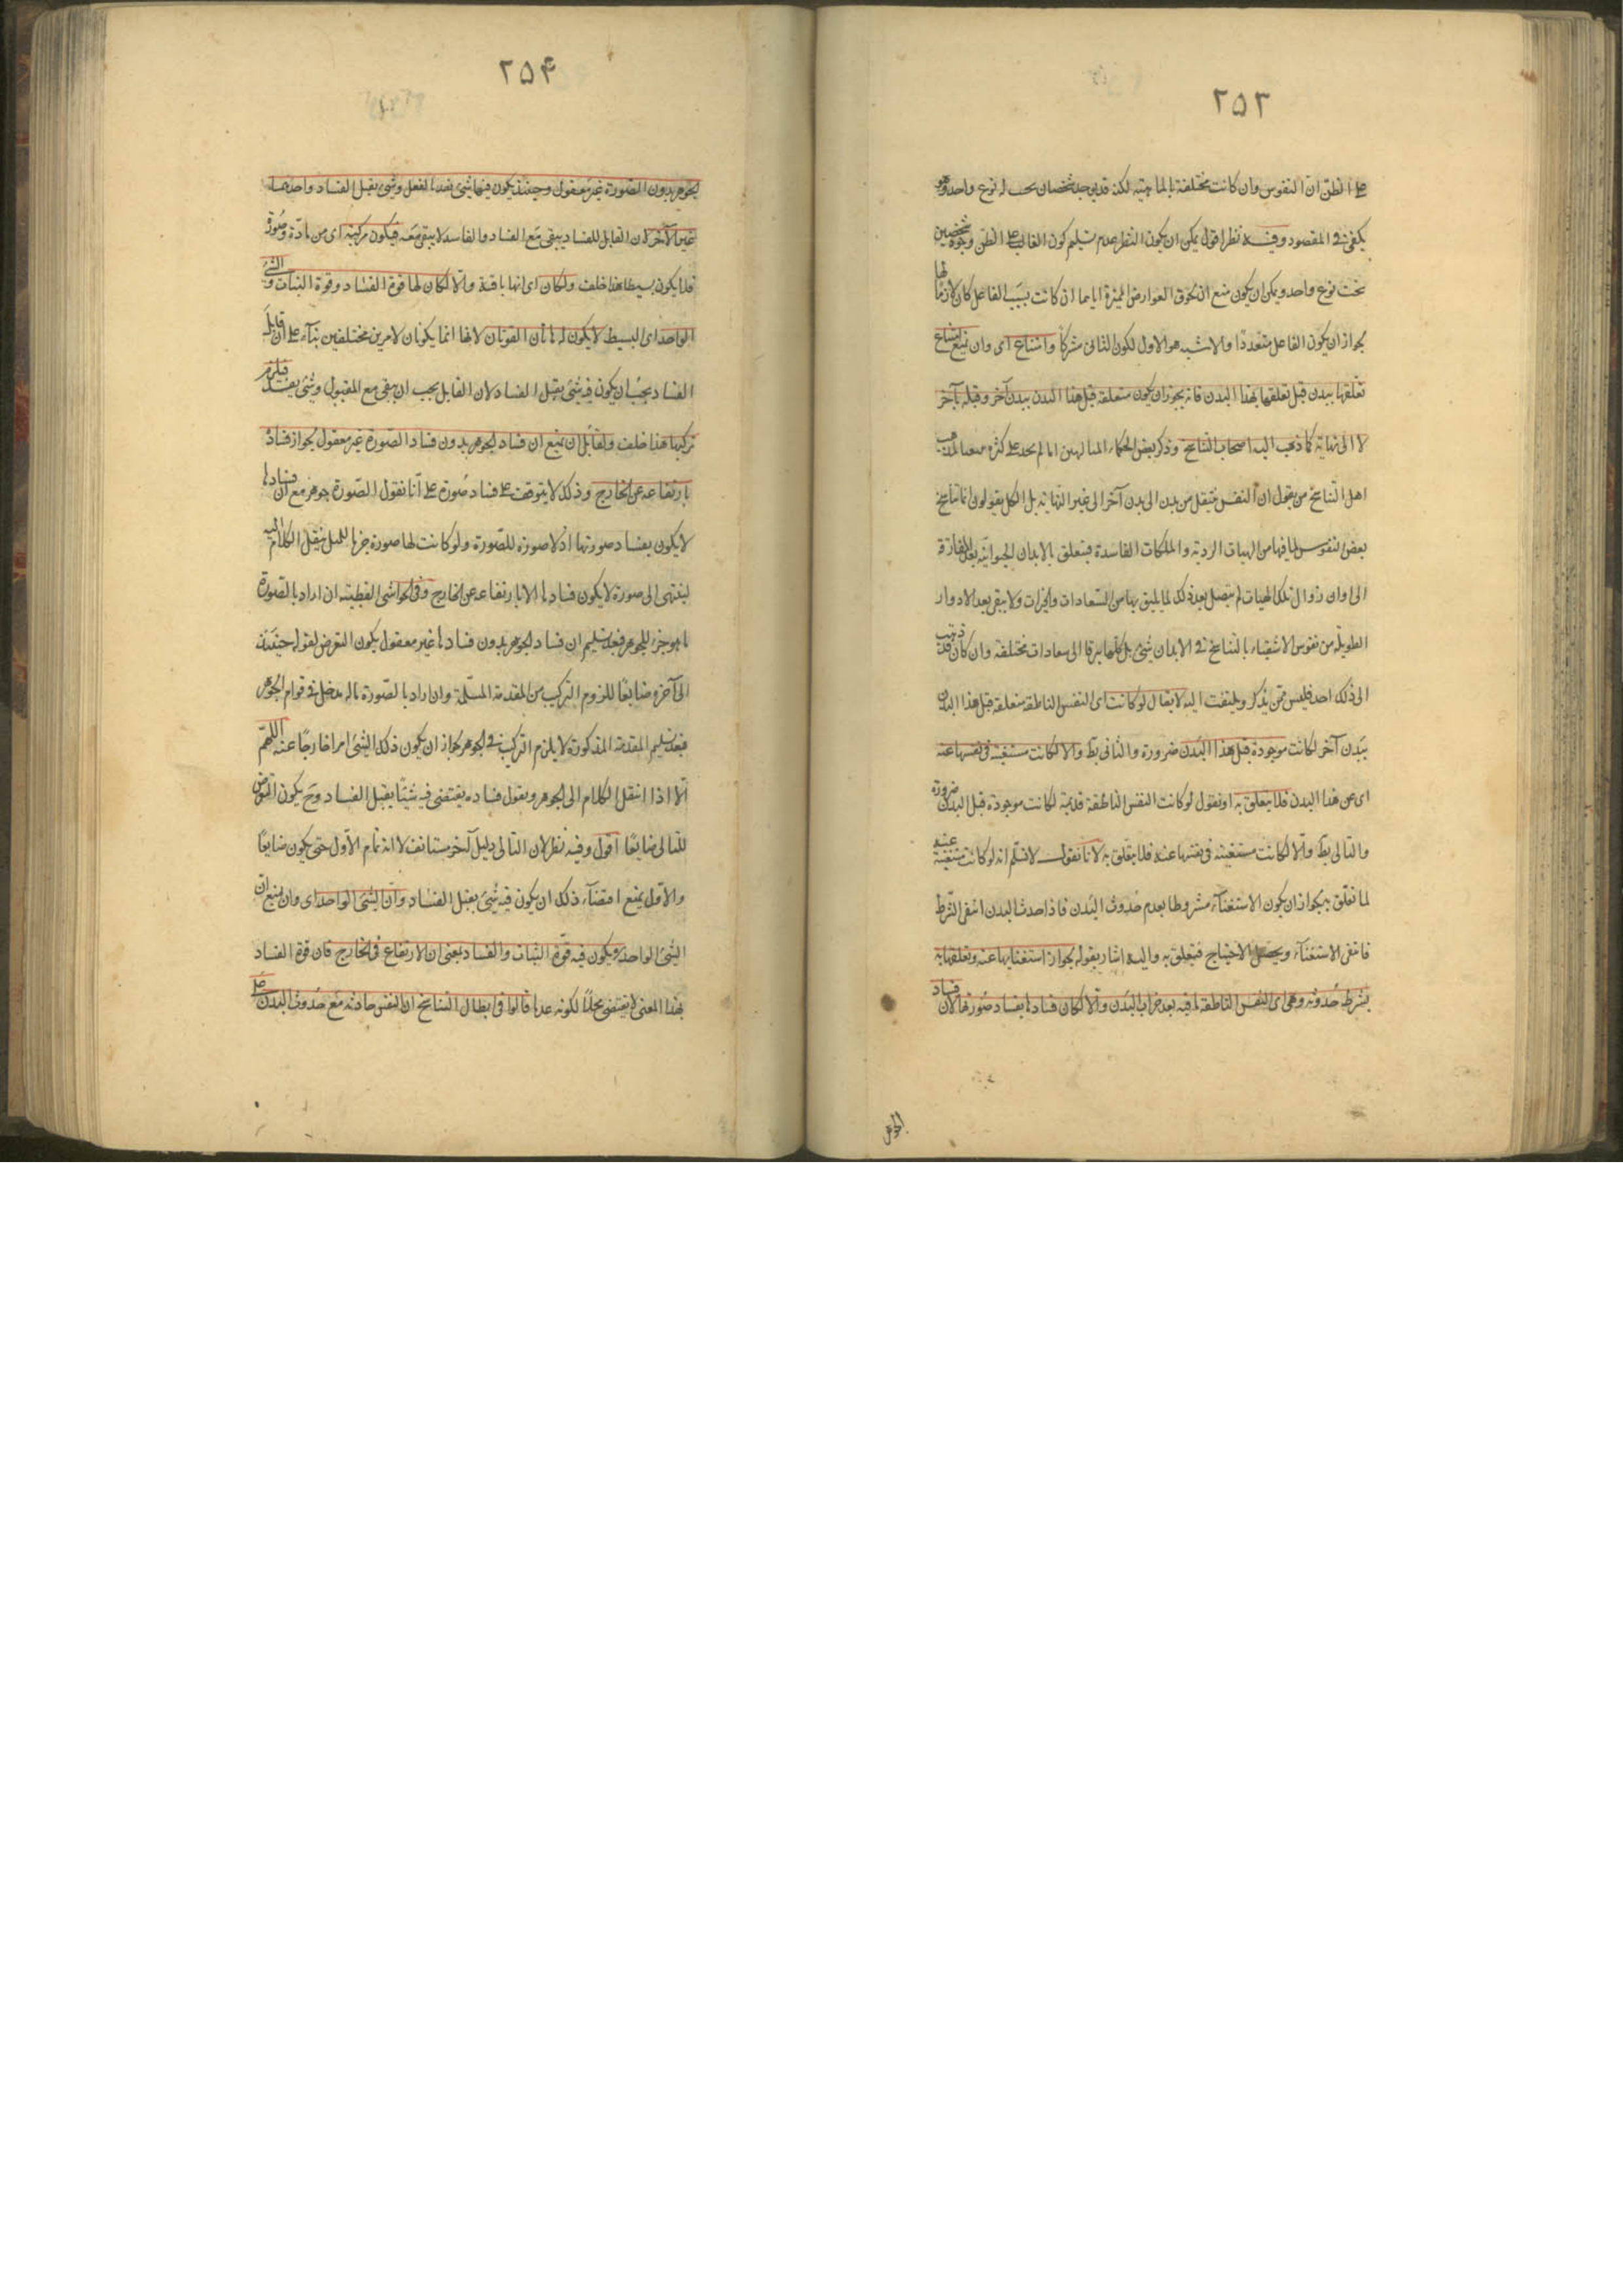 ٢٥٣
على الظن ان النفوس وان كانت مختلفة بالماهية لكنه قد يوجد شخصان تحت نوع واحد وهو
يكفى فى المقصود وفيه نظر اقول يمكن ان يكون النظر عدم تسليم كون الغالب على الظن وجود شخصين
تحت نوع واحد ويمكن ان يكون منع ان لحوق العوارض المميزة اياها ان كانت بسبب الفاعل كان لازما لها
لجواز ان يكون الفاعل متعددا والاشبه هو الاول لكون الثانى مشتركا وامتناع اى وان نمنع امتناع
تعلقها ببدن قبل تعلقها بهذا البدن فانه يجوز ان يكون متعلقة قبل هذا البدن ببدن آخر وقبله بآخر
لا الى نهاية كما ذهب اليه اصحاب التناسخ وذكر بعض الحكماء المتألهين انا لم نجد على كثرة
اهل التناسخ من يقول ان النفس ينتقل من بدن الى بدن آخر الى غير النهاية بل الكل يقولون انما تناسخ
بعض النفوس لما فيها من الهيات الردية والملكات الفاسدة فيتعلق بالابدان الحيوانية بعد المفارقة
الى اوان زوال تلك الهيات ثم يتصل بعد ذلك لما يليق بها من السعادات والخيرات ولا يبقى بعد الادوار
الطويلة من نفوس الاشقياء بالتناسخ فى الابدان شئ بل كلها يرقا الى سعادات مختلفة وان كان قد ذهب
الى ذلك احد فليس ممن يذكر ويلتفت اليه لا يقال لو كانت اى النفس الناطقة متعلقة قبل هذا البدن
ببدن آخر لكانت موجودة قبل هذا البدن ضرورة والثانى بط والا لكانت مستغنية فى نفسها عنه
اى عن هذا البدن فلا يتعلق به او نقول لو كانت النفس الناطقة قديمة لكانت موجودة قبل البدن ضرورة
والتالى بط والا لكانت مستغنية فى نفسها عنه فلا يتعلق به لانا نقول لا نسلم انه لو كانت مستغنية عنه
لما تعلق به لجواز ان يكون الاستغناء مشروطا بعدم حدوث البدن فاذا حدث البدن انتفى الشرط
فانتفى الاستغناء ويحصل الاحتياج فيتعلق به واليه اشار بقوله لجواز استغنايها عنه وتعلقها به
بشرط حدوثه وهى اى النفس الناطقة باقية بعد خراب البدن والا لكان فسادها بفساد صورتها لان فساد
الجوهر
٢٥۴
الجوهر بدون الصورة غير معقول وحينئذ يكون فيها شئ يفسد بالفعل وشئ يقبل الفساد واحدهما
غير الآخر لان القابل للفساد يبقى مع الفساد والفاسد لا يبقى معه فيكون مركبة اى من مادة وصورة
فلا يكون بسيطا هذا خلف ولكان اى انها باقية والا لكان لها قوة الفساد وقوة الثبات والشئ
الواحد اى البسيط لا يكون له هاتان القوتان لانها انما يكونان لامرين مختلفين بناء على ان قابل
الفساد يجب ان يكون فيه شئ يقبل الفساد لان القابل يجب ان يبقى مع المقبول وشئ يفسد فيلزم
تركبها هذا خلف ولقائل ان يمنع ان فساد الجوهر بدون فساد الصورة غير معقول لجواز فساده
بارتفاعه عن الخارج وذلك لا يتوقف على فساد صورة على انا نقول الصورة جوهر مع ان فسادها
لا يكون بفساد صورتها اذ لا صورة للصورة ولو كانت لها صورة ينقل الكلام اليه
لينتهى الى صورة لا يكون فسادها الا بارتفاعه عن الخارج وفى الحواشى القطبية ان اراد بالصورة
ما هو جزء للجوهر فبعد تسليم ان فساد الجوهر بدون فسادها غير معقول يكون التعرض لقوله حينئذ
الى آخره ضايعا للزوم التركيب من المقدمة المسلمة وان اراد بالصورة ماله مدخل فى قوام الجوهر
فبعد تسليم المقدمة المذكورة لا يلزم التركيب فى الجوهر لجواز ان يكون ذلك الشئ امرا خارجا عنه اللهم
الا اذا انتقل الكلام الى الجوهر ويقول فساده يقتضى فيه شيئا يقبل الفساد وح يكون التعرض
للتالى ضايعا اقول وفيه نظر لان التالى دليل آخر مستانف لا انه تمام الاول حتى يكون ضايعا
والاول يمنع اقتضاء ذلك ان يكون فيه شئ يقبل الفساد وان الشئ الواحد اى وان نمنع ان
الشئ الواحد ويكون فيه قوة الثبات والفساد بمعنى ان الارتفاع فى الخارج فان قوة الفساد
بهذا المعنى لا يقتضى محلا لكونه عدما قالوا فى ابطال التناسخ ان النفس حادثة مع حدوث البدن على